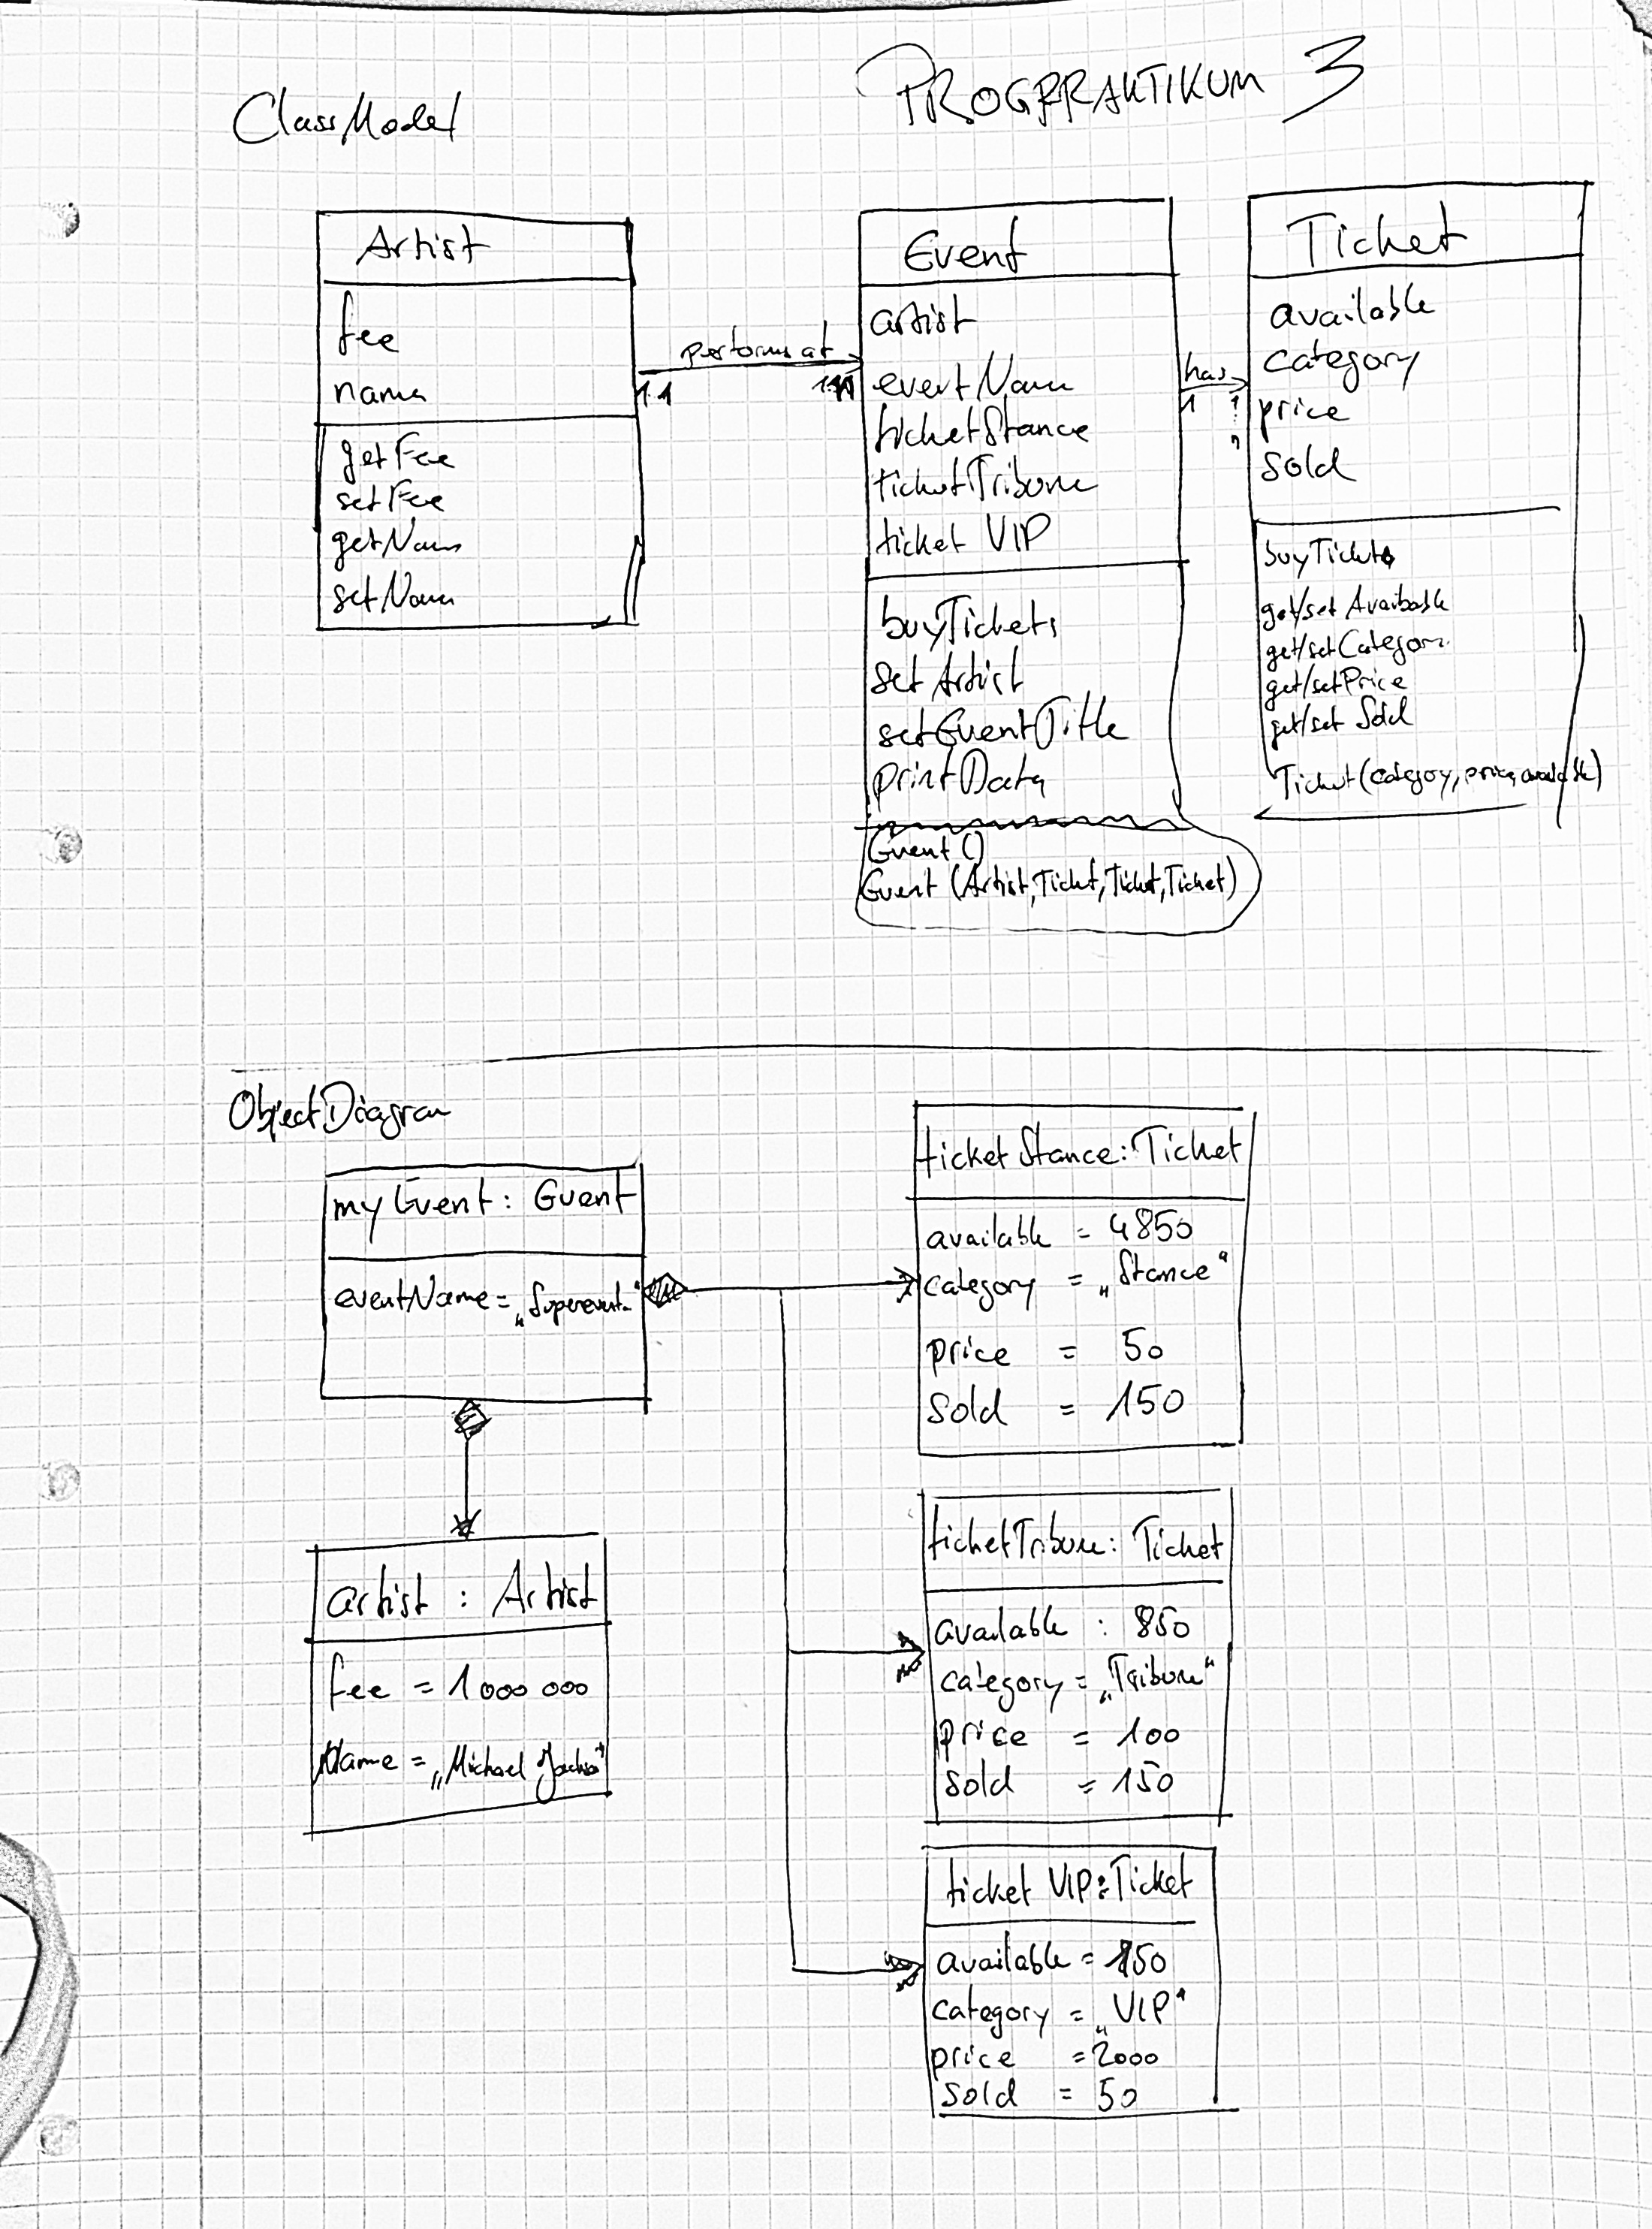 ClassModel
PROGPRAKTIKUM 3
Artist
fee
name
getFee
setFee
getName
setName
performs at
1.1
Event
artist
eventName
ticketStance
ticketTribune
ticket VIP
buyTickets
setArtist
setEventTitle
printData
Event ()
Event (Artist, Ticket, Ticket, Ticket)
has
1
Ticket
available
category
price
sold
buyTickets
get/set Available
get/set Category
get/set Price
get/set Sold
Ticket (category, price, available)
ObjectDiagram
myEvent : Event
eventName = „Superevent“
artist : Artist
fee = 1 000 000
Name = „Michael
ticketStance : Ticket
available = 4850
category = „Stance“
price = 50
sold = 150
ticketTribune : Ticket
available : 850
category = „Tribune“
price = 100
sold = 150
ticket VIP : Ticket
available = 150
category = „VIP“
price = 2000
sold = 50